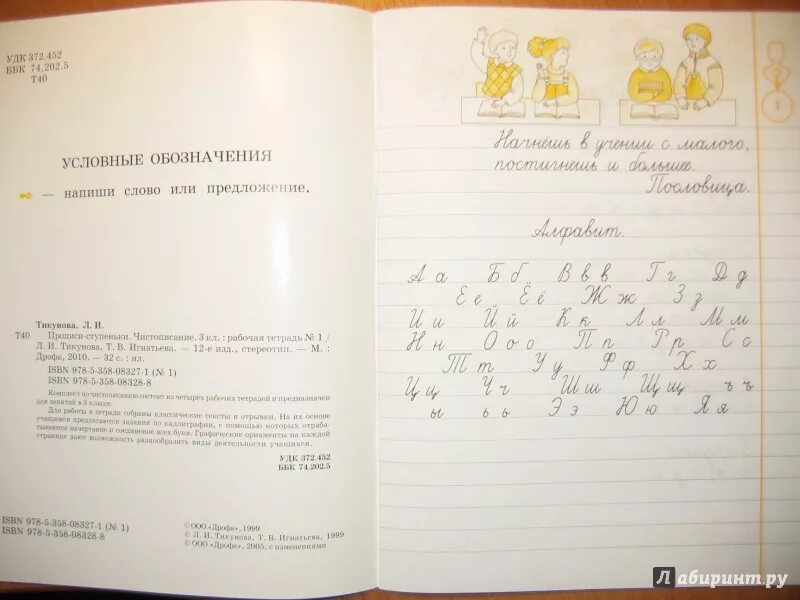 УДК 372.452
ББК 74.202.5
Т40
УСЛОВНЫЕ ОБОЗНАЧЕНИЯ
— напиши слово или предложение.
Тикунова, Л. И.
Т40 Прописи-ступеньки. Чистописание. 3 кл. : рабочая тетрадь № 1 /
Л. И. Тикунова, Т. В. Игнатьева. — 12-е изд., стереотип. — М. :
Дрофа, 2010. — 32 с. : ил.
ISBN 978-5-358-08327-1 (№ 1)
ISBN 978-5-358-08328-8
Комплект по чистописанию состоит из четырех рабочих тетрадей и предназначен
для занятий в 3 классе.
Для работы в тетради собраны классические тексты и отрывки. На их основе
учащимся предлагаются задания по каллиграфии, с помощью которых отраба-
тываются начертание и соединение всех букв. Графические орнаменты на каждой
странице дают возможность разнообразить виды деятельности учащихся.
УДК 372.452
ББК 74.202.5
ISBN 978-5-358-08327-1 (№ 1)
ISBN 978-5-358-08328-8
© ООО «Дрофа», 1999
© Л. И. Тикунова, Т. В. Игнатьева, 1999
© ООО «Дрофа», 2005, с изменениями
1
Начнёшь в учении с малого,
постигнешь и большее.
Пословица.
Алфавит.
А а Б б В в в Г г Д д
Е е Ё ё Ж ж З з
И и Й й К к Л л М м
Н н О о о П п Р р С с
Т т У у Ф ф Х х
Ц ц Ч ч Ш ш Щ щ ъ ъ
ы ь ь Э э Ю ю Я я
Лабиринт.ру